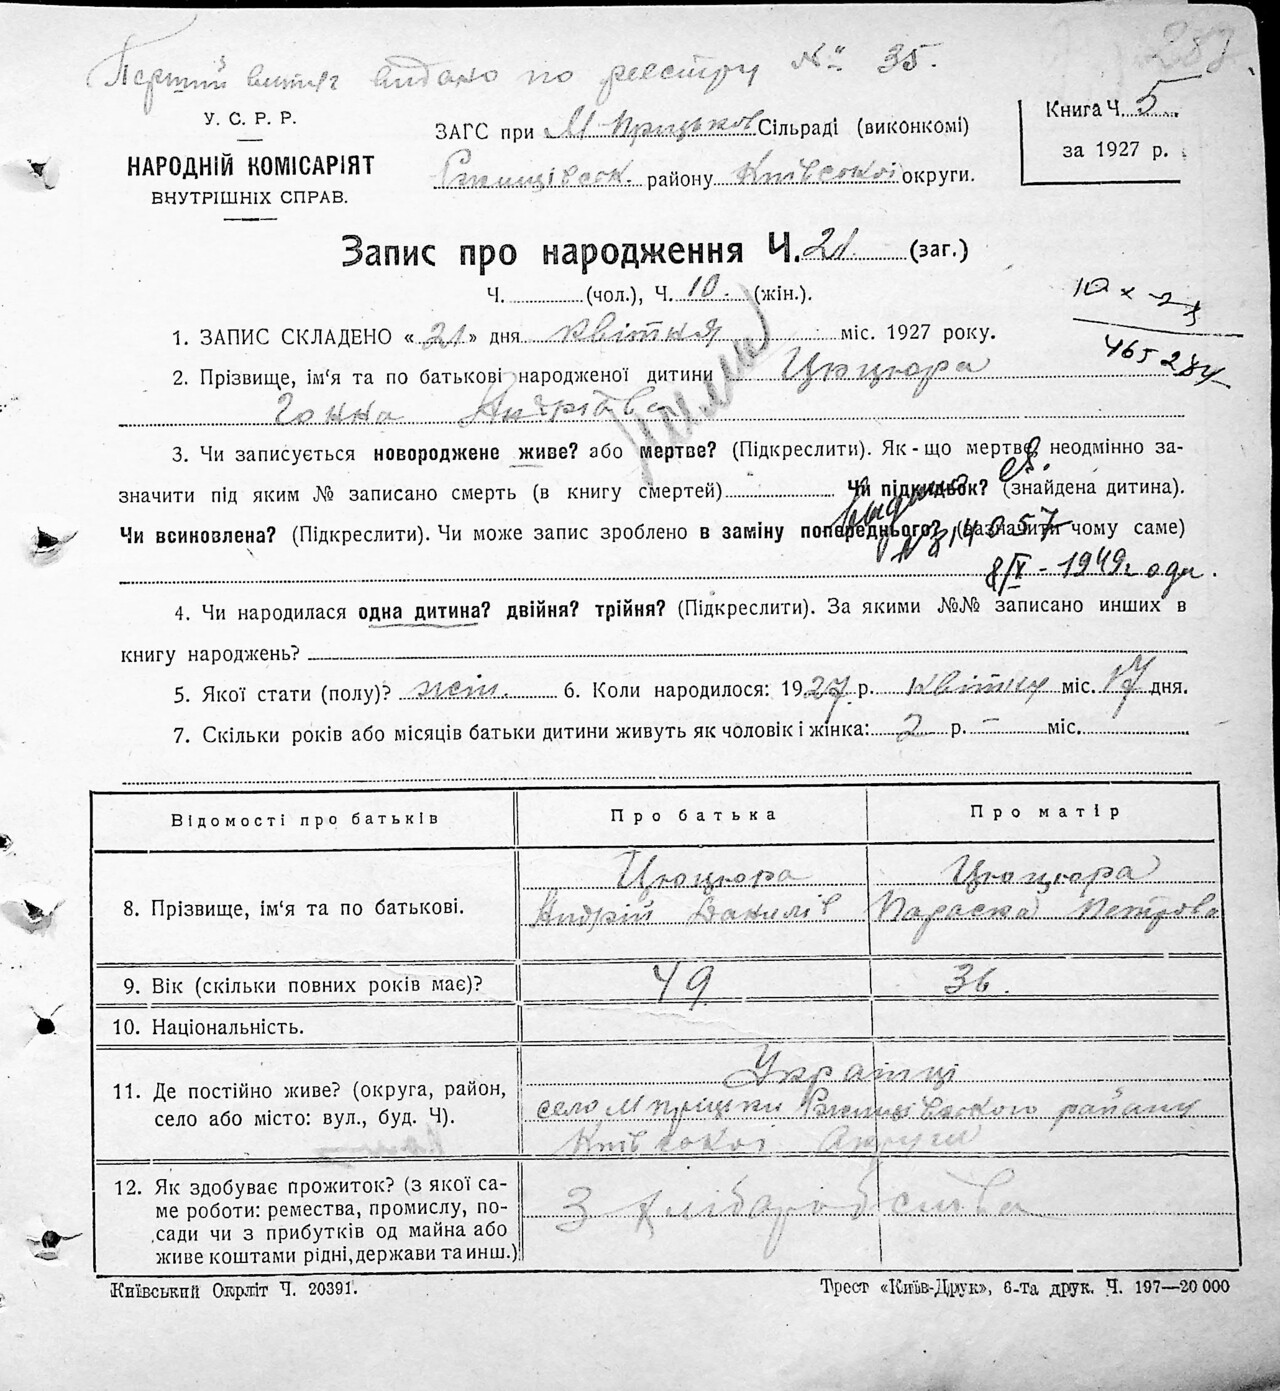 Перший витяг видано по реєстру № 35.
287.
У. С. Р. Р.
НАРОДНІЙ КОМІСАРІЯТ
ВНУТРІШНІХ СПРАВ.
ЗАГС при М-Прицьков Сільраді (виконкомі)
Ржищівськ. району Київської округи.
Книга Ч. 5
за 1927 р.
Запис про народження Ч. 21. (заг.)
Ч. (чол.), Ч. 10. (жін.).
10 х - 23
465284
1. ЗАПИС СКЛАДЕНО « 21 » дня квітня міс. 1927 року.
2. Прізвище, ім'я та по батькові народженої дитини Цюцюра
Ганна Андріївна
3. Чи записується новороджене живе? або мертве? (Підкреслити). Як-що мертве, неодмінно за-
значити під яким № записано смерть (в книгу смертей) Чи підкидьок? (знайдена дитина).
Чи всиновлена? (Підкреслити). Чи може запис зроблено в заміну попереднього? (зазначити чому саме)
8/IV - 1949 года.
4. Чи народилася одна дитина? двійня? трійня? (Підкреслити). За якими №№ записано инших в
книгу народжень?
5. Якої стати (полу)? жін. 6. Коли народилося: 1927 р. квітня міс. 17 дня.
7. Скільки років або місяців батьки дитини живуть як чоловік і жінка: 2 р. - міс.
Відомості про батьків Про батька Про матір
8. Прізвище, ім'я та по батькові. Цюцюра Цюцюра
Андрій Данилів Параска Петрова
9. Вік (скільки повних років має)? 49 36.
10. Національність.
Українці
11. Де постійно живе? (округа, район,
село або місто: вул., буд. Ч).
село М прицьки Ржищівського району
Київської Округи
12. Як здобуває прожиток? (з якої са-
ме роботи: ремества, промислу, по-
сади чи з прибутків од майна або
живе коштами рідні, держави та инш.)
З хліборобства
Київський Окрліт Ч. 20391.
Трест «Київ-Друк», 6-та друк. Ч. 197—20 000